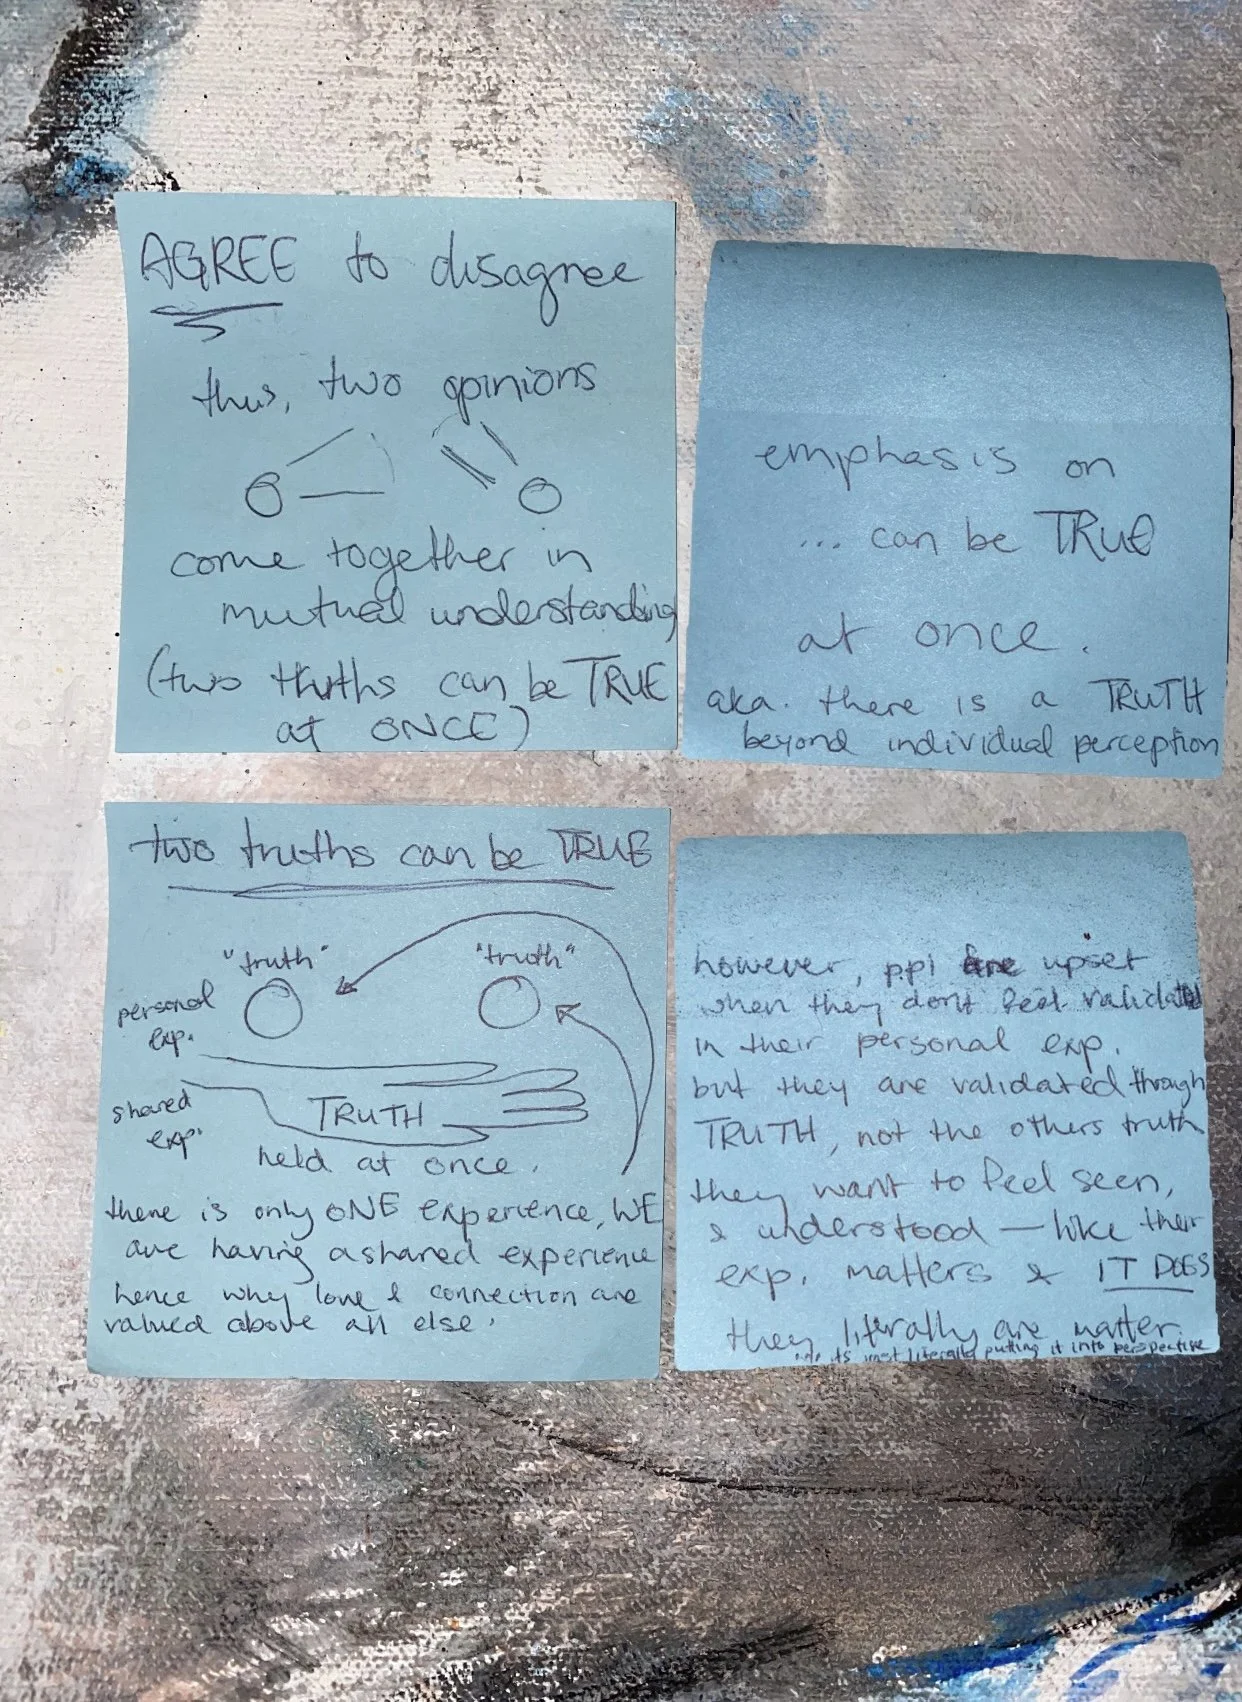 AGREE to disagree
thus, two opinions
come together in
mutual understanding
(two thths can be TRUE
at ONCE)
emphasis on
... can be TRUE
at once.
aka. there is a TRUTH
beyond individual perception
two truths can be TRUE
"truth" "truth"
personal
exp.
shared
exp.
TRUTH
held at once.
there is only ONE experience, WE
are having a shared experience
hence why love & connection are
valued above all else.
however, ppl are upset
when they dont feel validated
in their personal exp.
but they are validated through
TRUTH, not the others truth
they want to feel seen,
& understood — like their
exp. matters & IT DOES
they literally are matter.
its most literally putting it into perspective